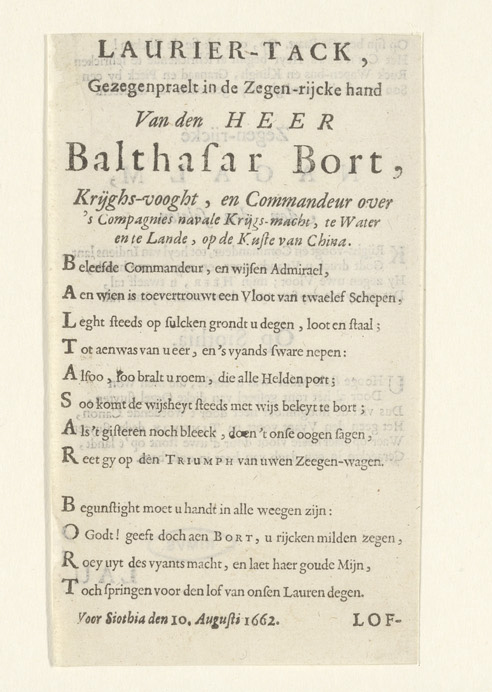 LAURIER-TACK,
Gezegenpraelt in de Zegen-rijcke hand
Van den HEER
Balthaſar Bort,
Krijghs-vooght, en Commandeur over
's Compagnies navale Krijgs-macht, te Water
en te Lande, op de Kuſte van China.
Beleefde Commandeur, en wijſen Admirael,
Aen wien is toevertrouwt een Vloot van twaelef Schepen,
Leght ſteeds op ſulcken grondt u degen, loot en ſtaal;
Tot aenwas van u eer, en 's vyands ſware nepen:
Alſoo, ſoo bralt u roem, die alle Helden port;
Soo komt de wijsheyt ſteeds met wijs beleyt te bort;
Als 't giſteren noch bleeck, doen 't onſe oogen ſagen,
Reet gy op den TRIUMPH van uwen Zeegen-wagen.
Begunſtight moet u handt in alle weegen zijn:
O Godt! geeft doch aen BORT, u rijcken milden zegen,
Roey uyt des vyants macht, en laet haer goude Mijn,
Toch ſpringen voor den lof van onſen Lauren degen.
Voor Siothia den 10. Auguſti 1662. LOF-